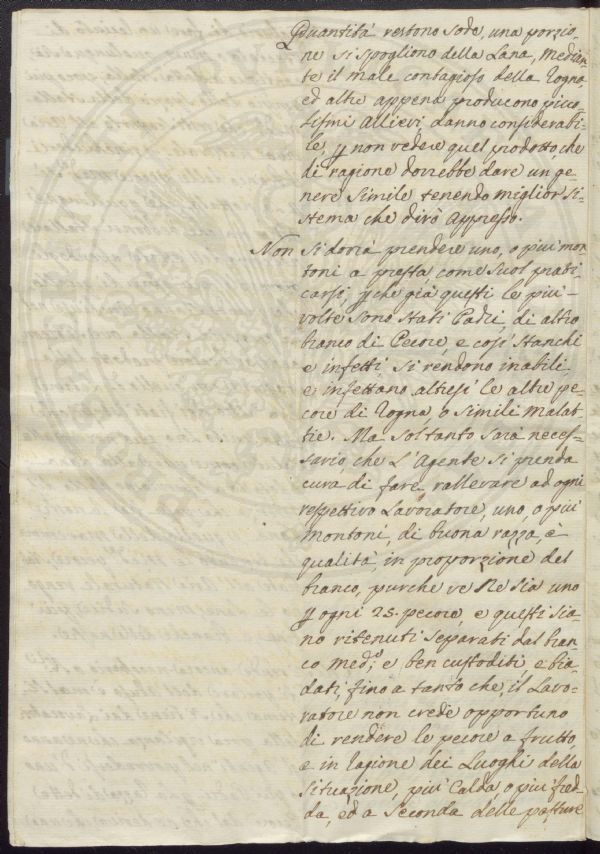 Quantità restono sode, una porzio-
ne si spogliono della Lana, median-
te il male contagioso della Rogna,
ed altre appena producono picco-
lissimi Allievi, danno considerabi-
le, p non vedere quel prodotto, che
di ragione dovrebbe dare un ge-
nere simile tenendo miglior si-
stema che dirò appresso.
Non si dovrà prendere uno, o più mon-
toni a presta, come suol prati-
carsi, p che già questi le più
volte sono stati Padri, di altro
branco di Pecore, e così stanchi
e infetti, si rendono inabili
e infettano altresì le altre pe-
core di Rogna, o simili malat-
tie. Ma soltanto sarà neces-
sario, che L'Agente si prenda
cura di fare rallevare ad ogni
respettivo Lavoratore, uno, o più
montoni, di buona razza, è
qualità, in proporzione del
branco, purche ve ne sia uno
p ogni 25. pecore, e questi sia-
no ritenuti separati dal bran-
co med:o e ben custoditi e bia-
dati, fino a tanto che, il Lavo-
ratore non crede opportuno
di rendere le pecore a frutto,
e in ragione dei Luoghi della
situazione, più Calda, o più fred-
da, ed a seconda delle pasture